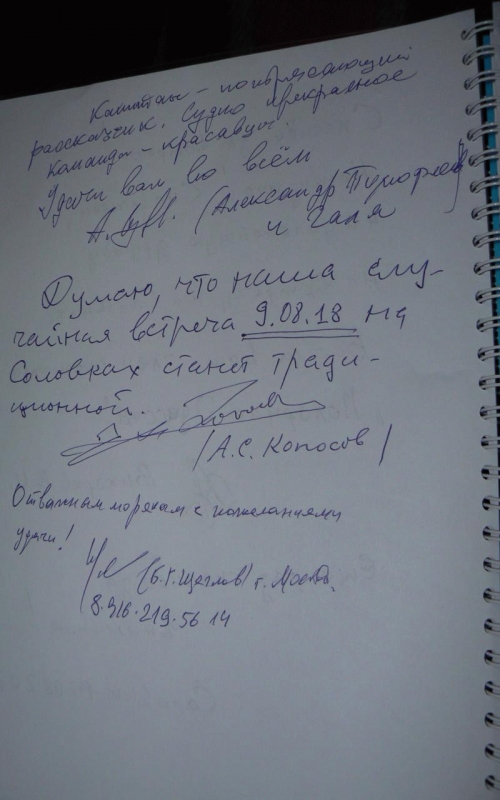 Капитан - потрясающий
рассказчик. Судно прекрасное
Команда - красавцы.
Удачи вам во всём
(Александр Тимофеев)
и Галя
Думаю, что наша слу-
чайная встреча 9.08.18 на
Соловках станет тради-
ционной.
/А.С. Копосов/
Отважным морякам с пожеланиями
удачи!
(Б.Г. Щеглов) г. Москва.
8.916.219.56 14